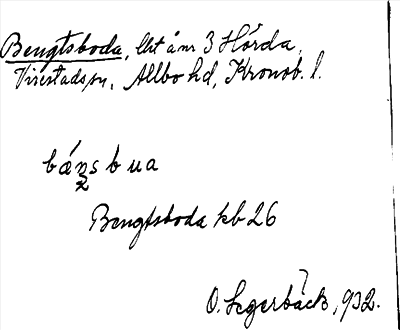 Bengtsboda, lht å nr 3 Hörda,
Virestads sn, Allbo hd, Kronob. l.
bæŋsbua
Bengtsboda kb 26
O. Segerbäck, 932.